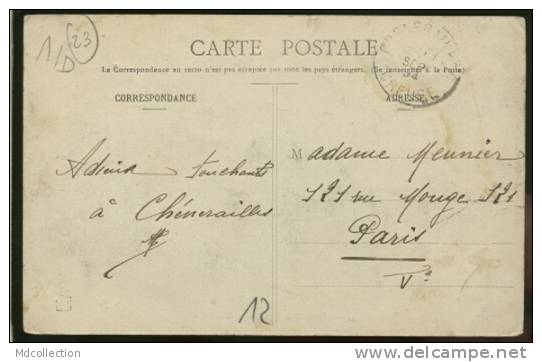 1/D 23
CARTE POSTALE
La Correspondance au recto n'est pas acceptée par tous les pays étrangers. (Se renseigner à la Poste)
CORRESPONDANCE
ADRESSE
CREUSE
Adieux touchants
à Chénerailles
Madame Meunier
121 rue Monge 121
Paris
Ve
12
Mdcollection
www.delcampe.net